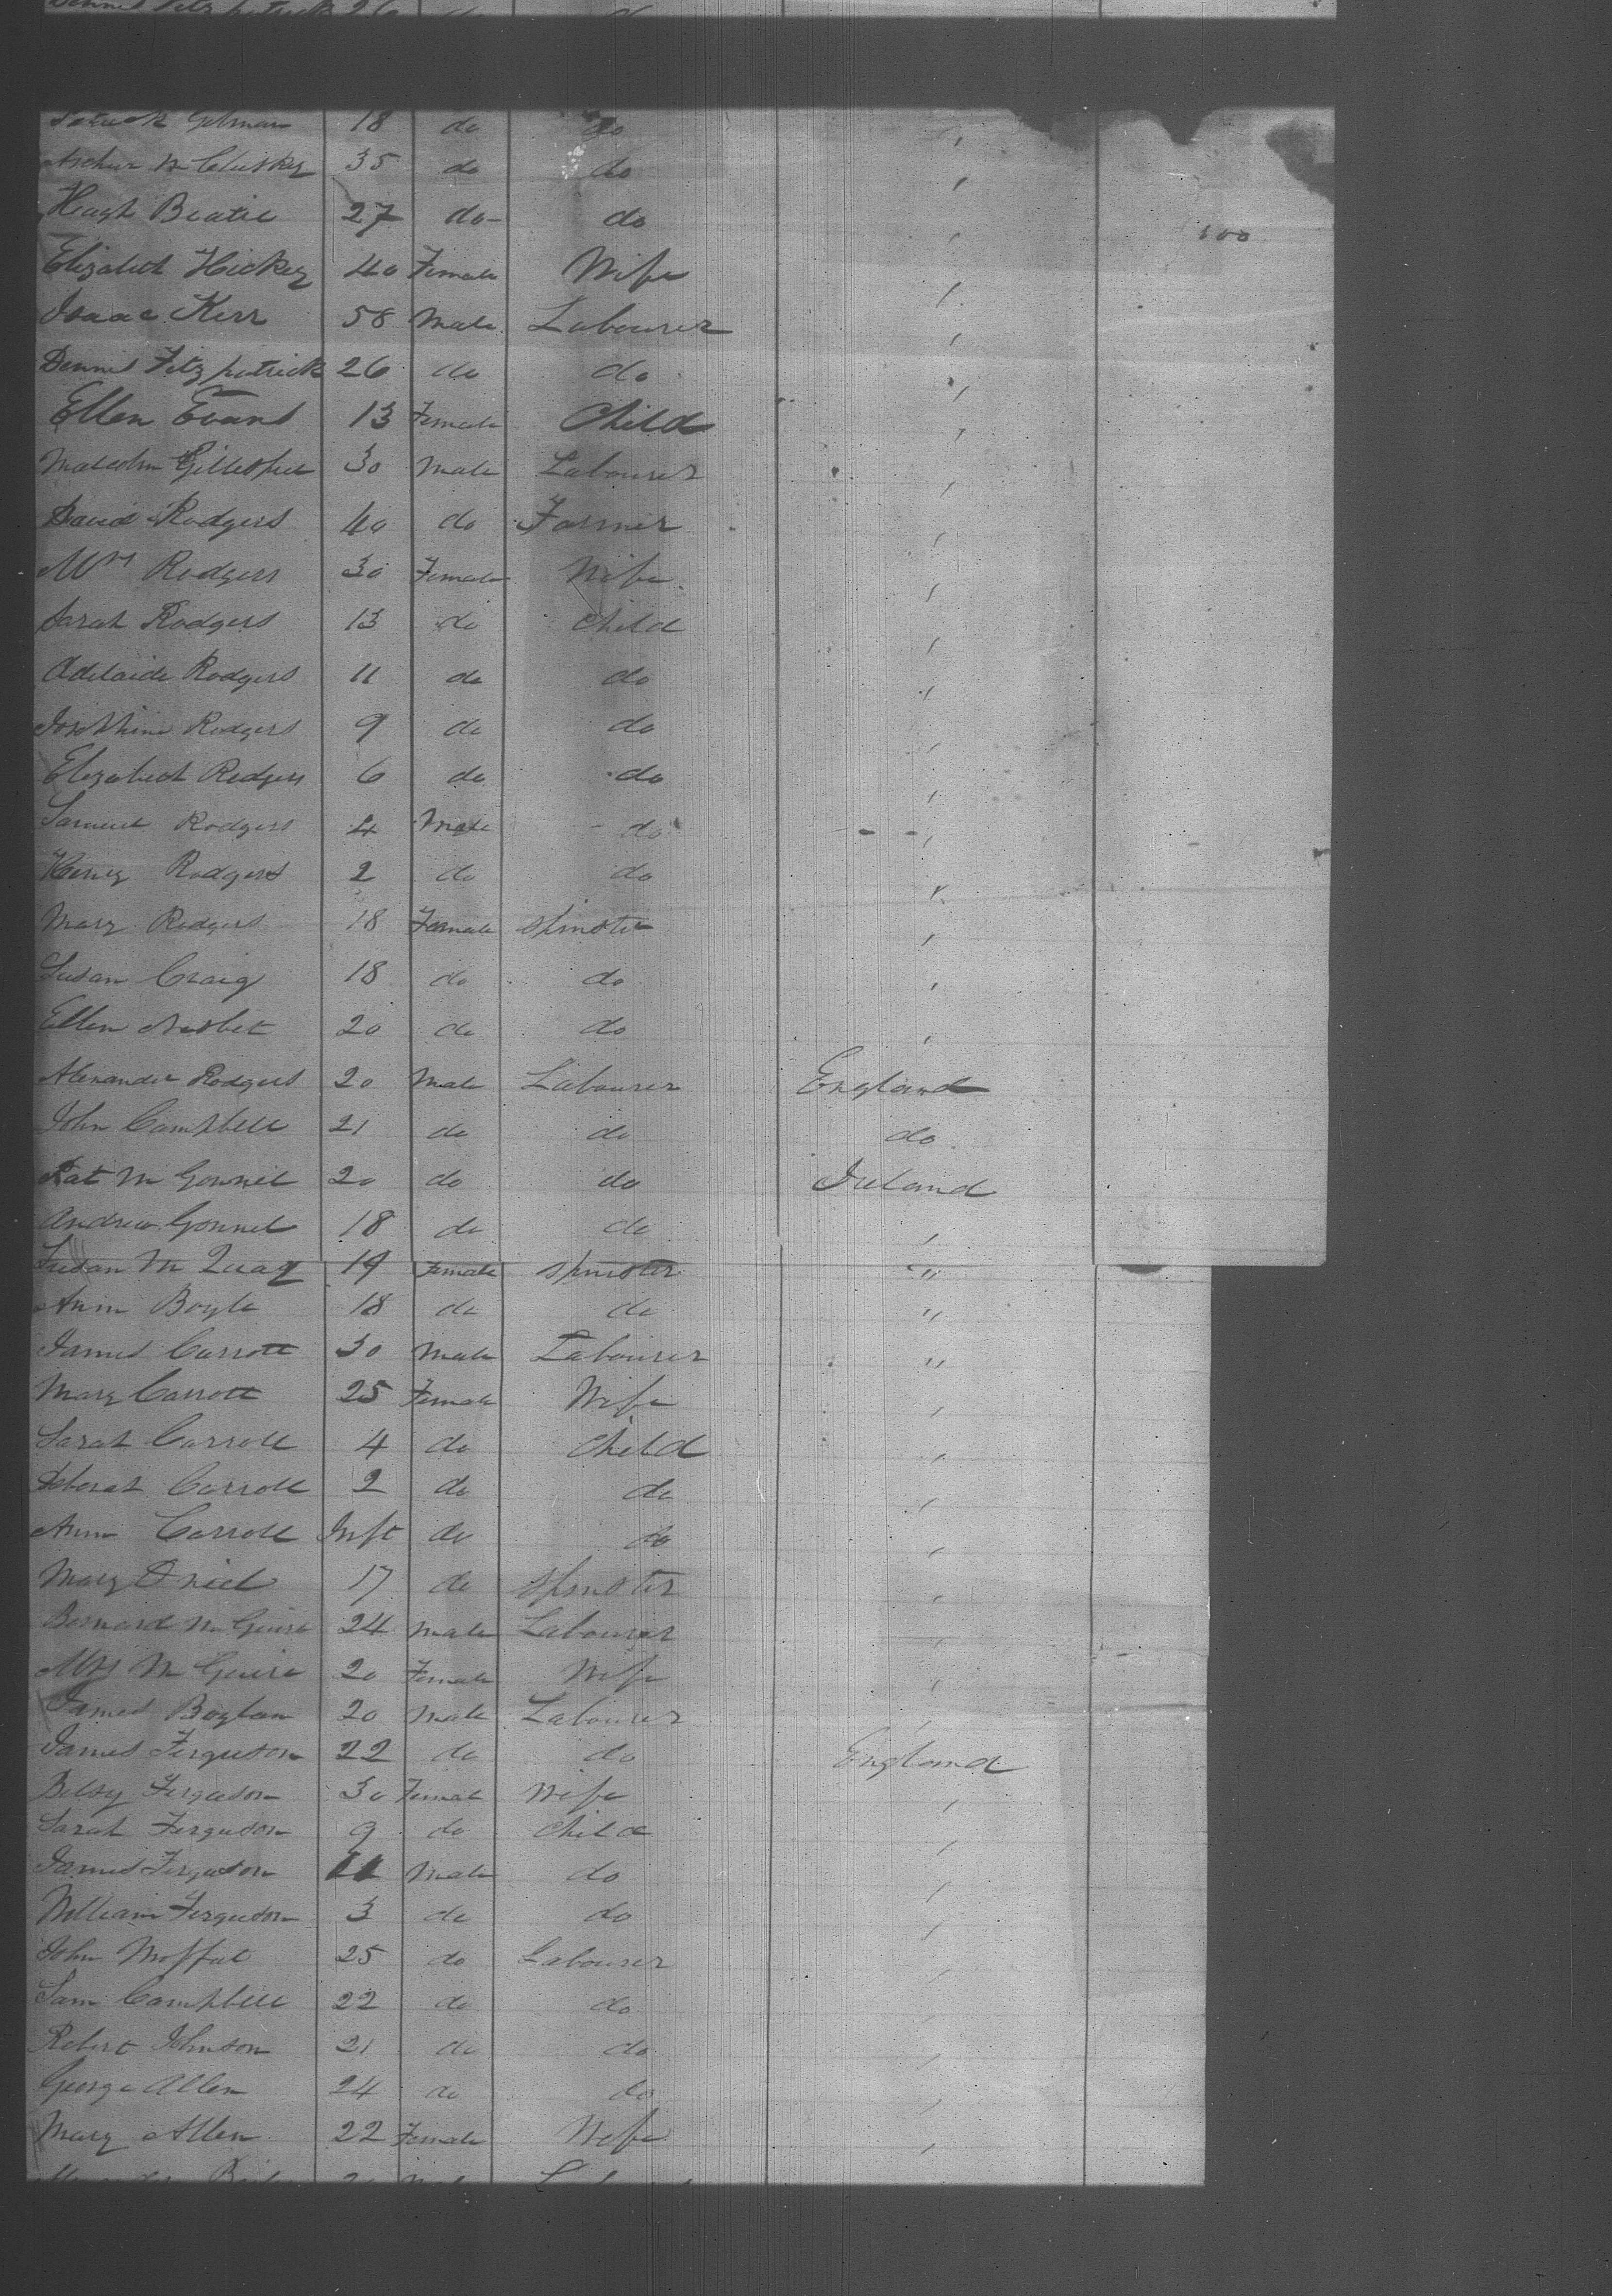 Dennis Fitzpatrick 26 do do
Patrick Gilman 18 do do "
Arthur McCluskey 35 do do "
Hugh Beatie 27 do do " 100
Elizabeth Hickey 40 Female Wife "
Isaac Kerr 58 Male Labourer "
Dennis Fitzpatrick 26 do do "
Ellen Evans 13 Female Child "
Malcolm Gillespie 30 Male Labourer "
David Rodgers 40 do Farmer "
Mrs Rodgers 30 Female Wife "
Sarah Rodgers 13 do Child "
Adelaide Rodgers 11 do do "
Josephine Rodgers 9 do do "
Elizabeth Rodgers 6 do do "
Samuel Rodgers 4 Male do "
Henry Rodgers 2 do do "
Mary Rodgers 18 Female Spinster "
Susan Craig 18 do do "
Ellen Nesbet 20 do do "
Alexander Rodgers 20 Male Labourer England
John Campbell 21 do do do
Pat McGonnel 20 do do Ireland
Andrew Gonnel 18 do do "
Susan McQuag 19 Female Spinster "
Ann Boyle 18 do do "
James Carroll 30 Male Labourer "
Mary Carroll 25 Female Wife "
Sarah Carroll 4 do Child "
Deborah Carroll 2 do do "
Ann Carroll Inft do do "
Mary Oneil 17 do Spinster "
Bernard McGuire 24 Male Labourer "
Mrs McGuire 20 Female Wife "
James Boylan 20 Male Labourer "
James Ferguson 22 do do England
Betsy Ferguson 30 Female Wife "
Sarah Ferguson 9 do Child "
James Ferguson Male do "
William Ferguson 3 do do "
John Moffat 25 do Labourer "
Sam Campbell 22 do do "
Robert Johnson 21 do do "
George Allen 24 do do "
Mary Allen 22 Female Wife "